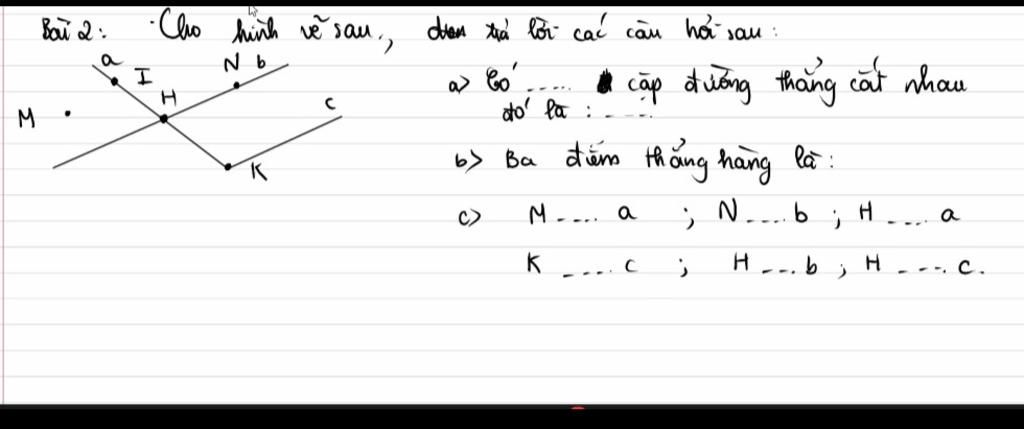 Bài 2: Cho hình vẽ sau, trả lời các câu hỏi sau:
a I N b
a) Có ..... cặp đường thẳng cắt nhau
H c
M đó là : .....
K b) Ba điểm thẳng hàng là:
c) M ..... a ; N ..... b ; H ..... a
K ..... c ; H ..... b ; H ..... c.